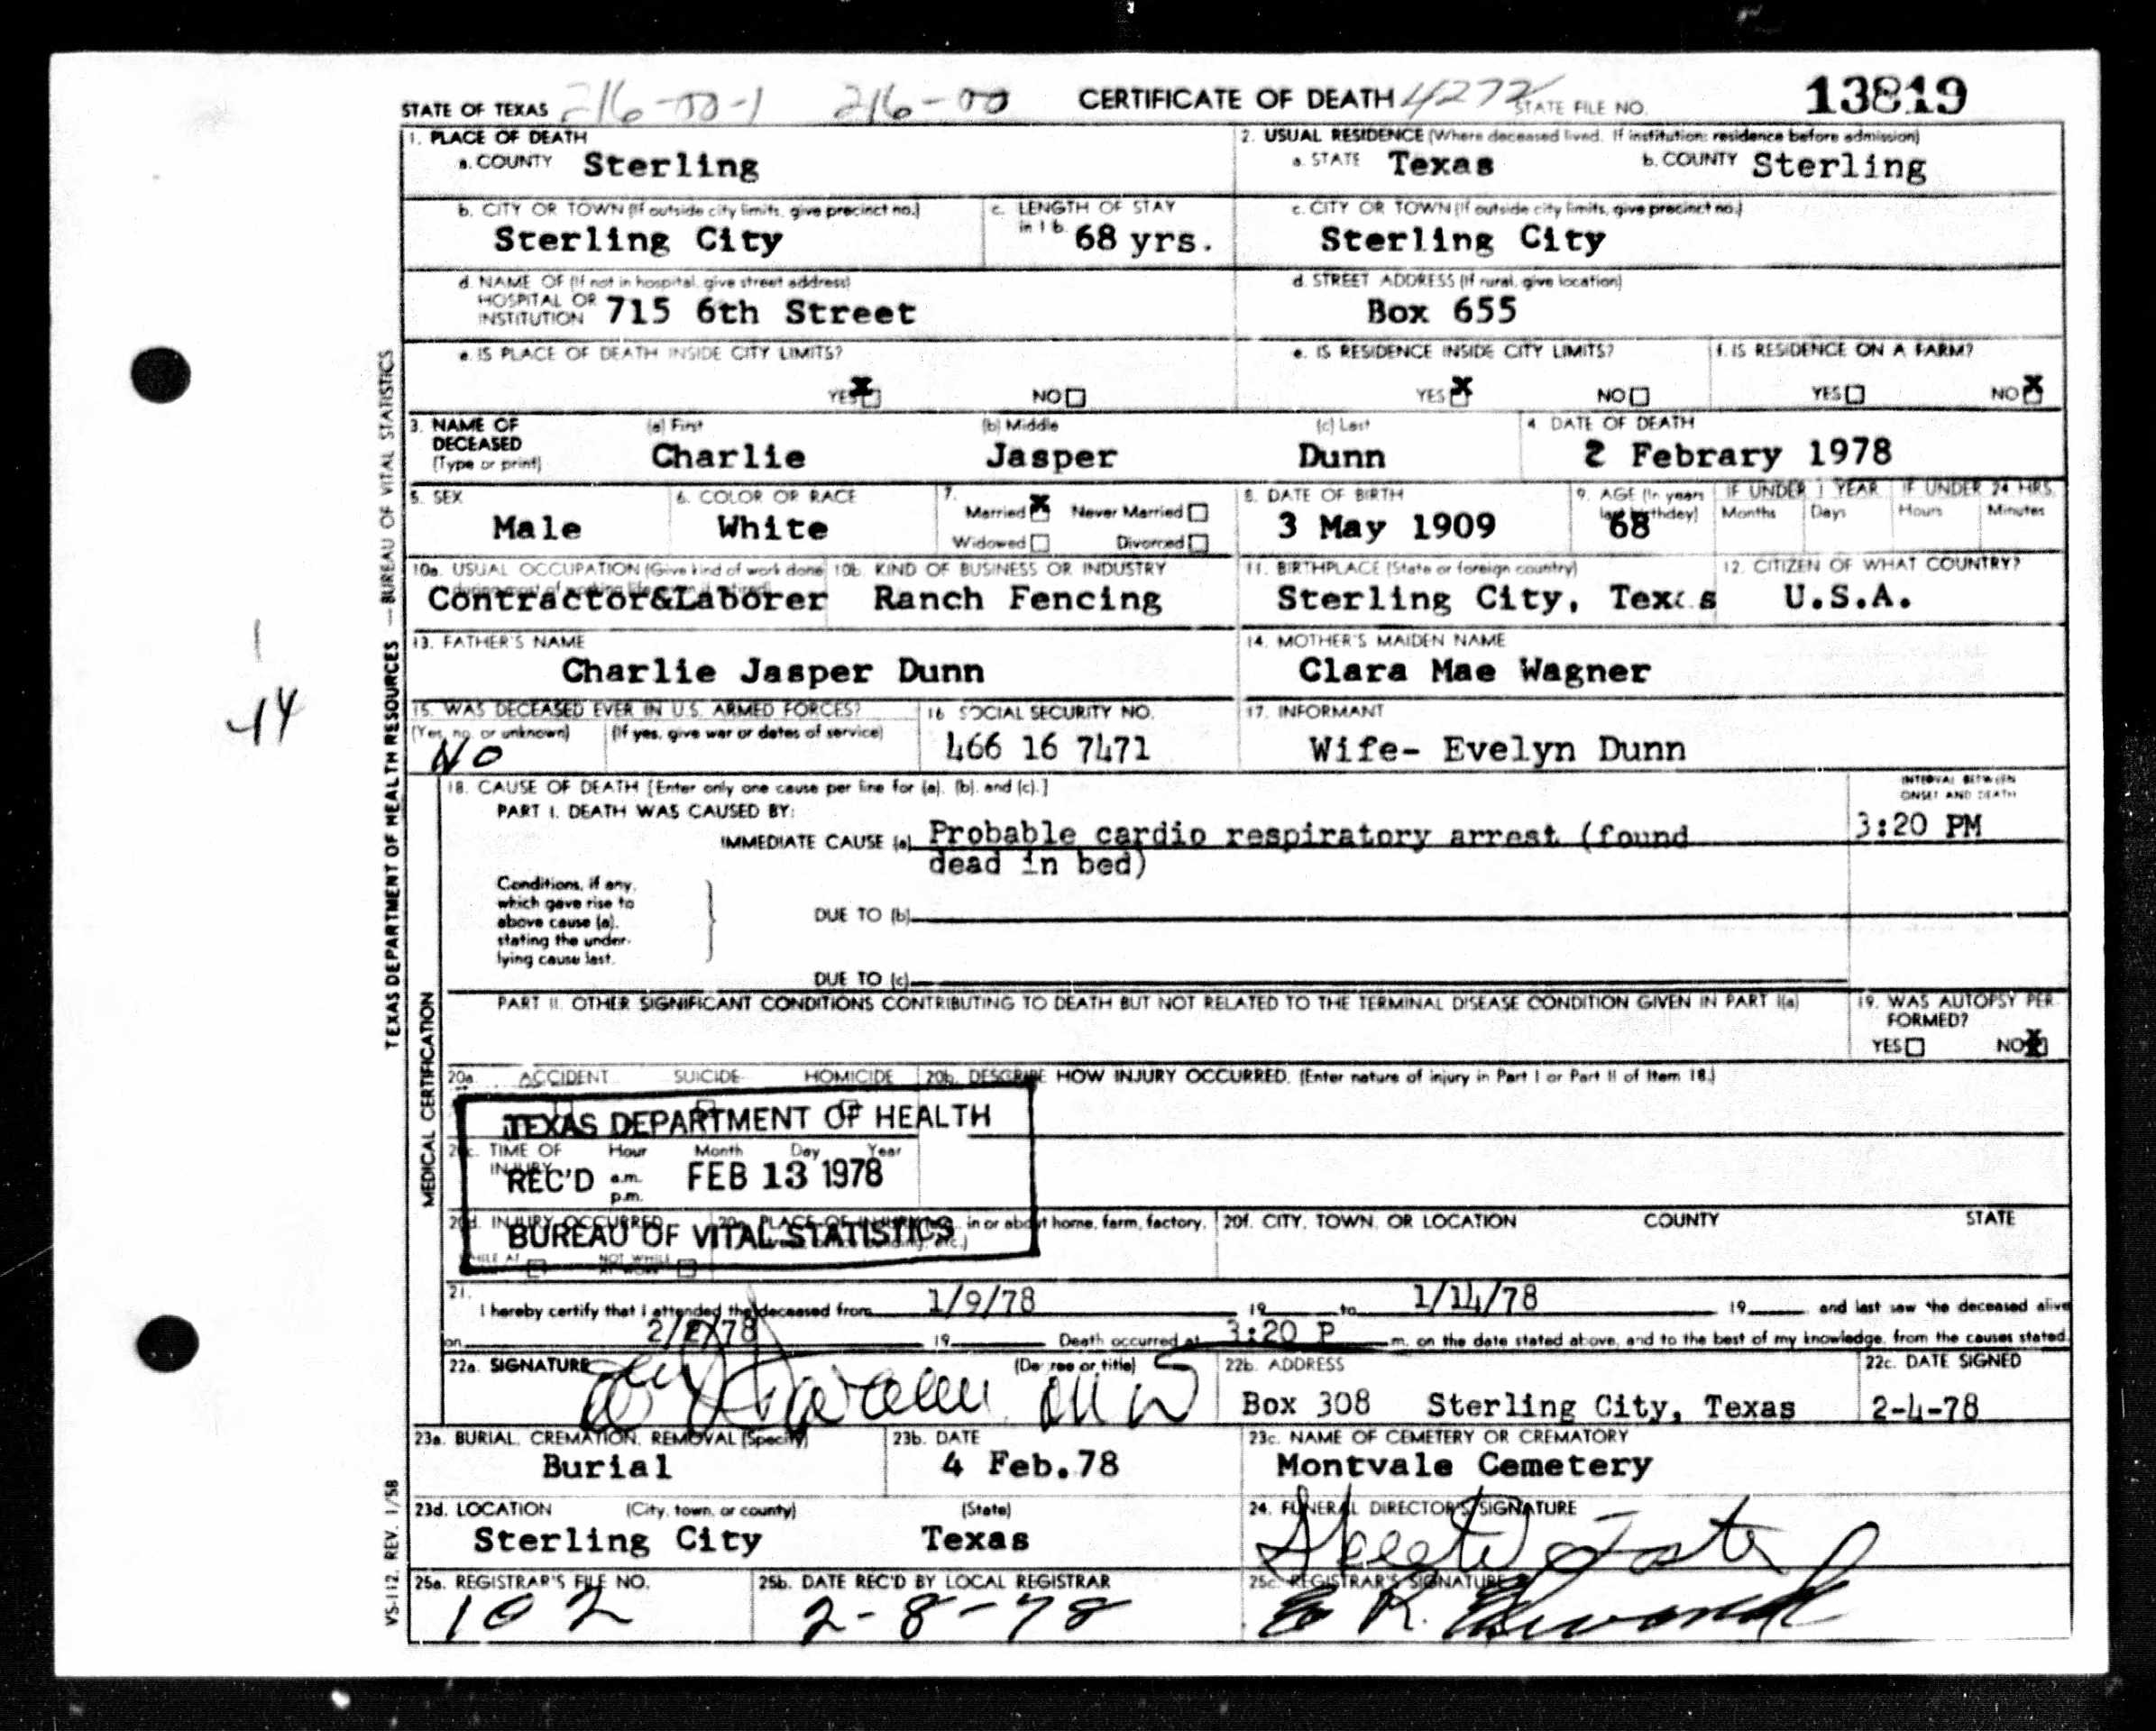 STATE OF TEXAS 216-00-1 216-00 CERTIFICATE OF DEATH 4272 STATE FILE NO. 13819
1. PLACE OF DEATH
a. COUNTY Sterling
2. USUAL RESIDENCE (Where deceased lived. If institution: residence before admission)
a. STATE Texas b. COUNTY Sterling
b. CITY OR TOWN (If outside city limits, give precinct no.)
Sterling City
c. LENGTH OF STAY
in 1 b. 68 yrs.
c. CITY OR TOWN (If outside city limits, give precinct no.)
Sterling City
d. NAME OF (If not in hospital, give street address)
HOSPITAL OR
INSTITUTION 715 6th Street
d. STREET ADDRESS (If rural, give location)
Box 655
e. IS PLACE OF DEATH INSIDE CITY LIMITS?
YES X NO
e. IS RESIDENCE INSIDE CITY LIMITS?
YES X NO
f. IS RESIDENCE ON A FARM?
YES NO X
3. NAME OF
DECEASED
(Type or print)
(a) First (b) Middle (c) Last
Charlie Jasper Dunn
4 DATE OF DEATH
2 Febrary 1978
5. SEX
Male
6. COLOR OR RACE
White
7.
Married X Never Married
Widowed Divorced
8. DATE OF BIRTH
3 May 1909
9. AGE (In years
last birthday)
68
IF UNDER 1 YEAR IF UNDER 24 HRS.
Months Days Hours Minutes
10a. USUAL OCCUPATION (Give kind of work done
during most of working life, even if retired)
Contractor&Laborer
10b. KIND OF BUSINESS OR INDUSTRY
Ranch Fencing
11. BIRTHPLACE (State or foreign country)
Sterling City, Texas
12. CITIZEN OF WHAT COUNTRY?
U.S.A.
13. FATHER'S NAME
Charlie Jasper Dunn
14. MOTHER'S MAIDEN NAME
Clara Mae Wagner
15. WAS DECEASED EVER IN U.S. ARMED FORCES?
(Yes, no, or unknown) (If yes, give war or dates of service)
NO
16 SOCIAL SECURITY NO.
466 16 7471
17. INFORMANT
Wife- Evelyn Dunn
18. CAUSE OF DEATH [Enter only one cause per line for (a), (b), and (c).]
PART I. DEATH WAS CAUSED BY:
IMMEDIATE CAUSE (a) Probable cardio respiratory arrest (found
dead in bed)
INTERVAL BETWEEN
ONSET AND DEATH
3:20 PM
Conditions, if any,
which gave rise to
above cause (a),
stating the under-
lying cause last.
DUE TO (b)
DUE TO (c)
PART II. OTHER SIGNIFICANT CONDITIONS CONTRIBUTING TO DEATH BUT NOT RELATED TO THE TERMINAL DISEASE CONDITION GIVEN IN PART I(a)
19. WAS AUTOPSY PER-
FORMED?
YES NO X
20a. ACCIDENT SUICIDE HOMICIDE
20b. DESCRIBE HOW INJURY OCCURRED. (Enter nature of injury in Part I or Part II of Item 18.)
TEXAS DEPARTMENT OF HEALTH
REC'D FEB 13 1978
BUREAU OF VITAL STATISTICS
20c. TIME OF
INJURY
Hour Month Day Year
a.m.
p.m.
20d. INJURY OCCURRED
WHILE AT NOT WHILE
AT WORK
20e. PLACE OF INJURY in or about home, farm, factory,
building, etc.)
20f. CITY, TOWN, OR LOCATION COUNTY STATE
21.
I hereby certify that I attended the deceased from 1/9/78 19 to 1/14/78 19 and last saw the deceased alive
on 2/2/78 19 Death occurred at 3:20 P m. on the date stated above, and to the best of my knowledge, from the causes stated.
22a. SIGNATURE (Degree or title)
MD
22b. ADDRESS
Box 308 Sterling City, Texas
22c. DATE SIGNED
2-4-78
23a. BURIAL, CREMATION, REMOVAL (Specify)
Burial
23b. DATE
4 Feb.78
23c. NAME OF CEMETERY OR CREMATORY
Montvale Cemetery
23d. LOCATION (City, town, or county) (State)
Sterling City Texas
24. FUNERAL DIRECTOR'S SIGNATURE
25a. REGISTRAR'S FILE NO.
102
25b. DATE REC'D BY LOCAL REGISTRAR
2-8-78
25c. REGISTRAR'S SIGNATURE
TEXAS DEPARTMENT OF HEALTH RESOURCES — BUREAU OF VITAL STATISTICS
MEDICAL CERTIFICATION
VS-112, REV. 1/58
1
14